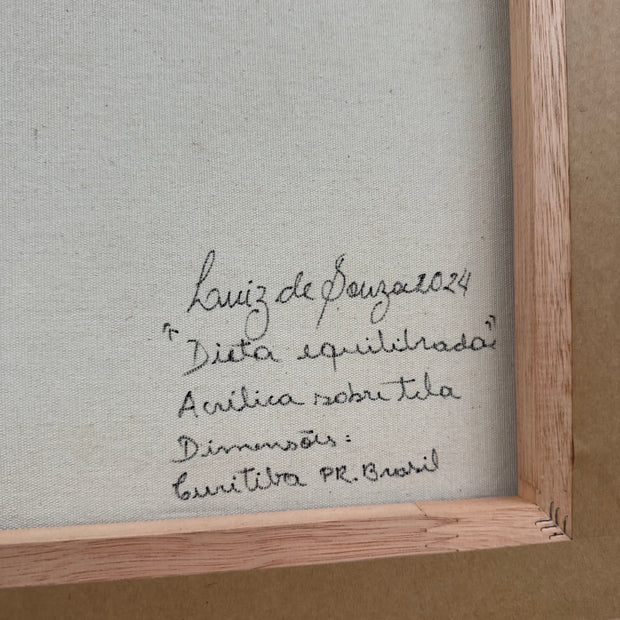 Luiz de Souza 2024
"Dieta equilibrada"
Acrílica sobre tela
Dimensões:
Curitiba PR. Brasil